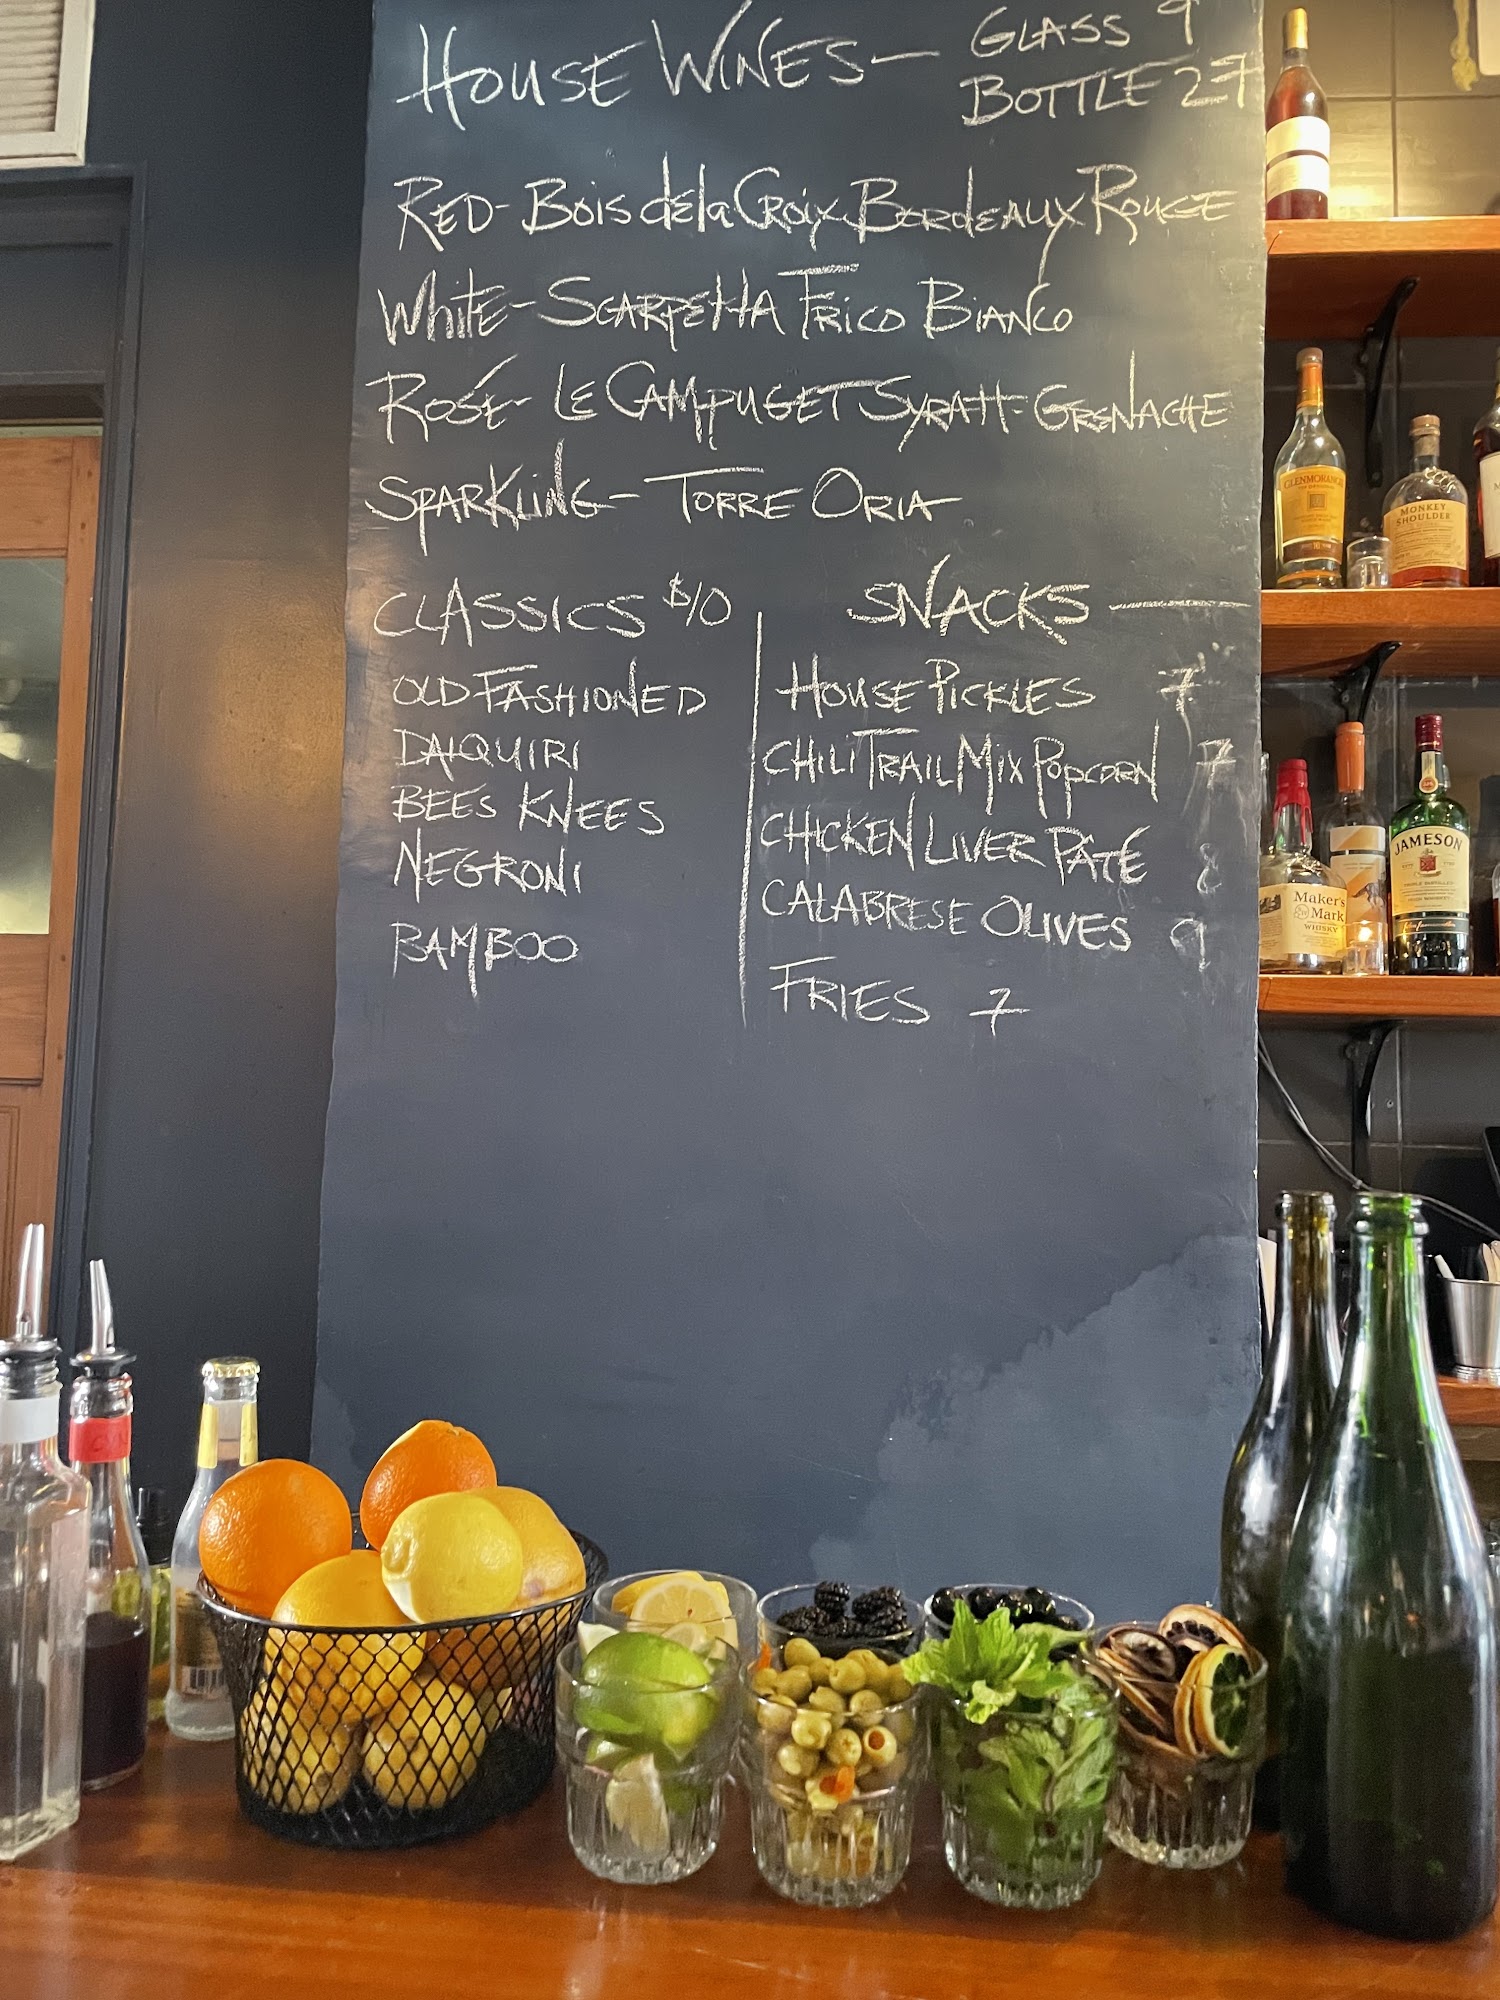 HOUSE WINES — GLASS 9
BOTTLE 27
RED - BOIS de la CROIX BORDEAUX ROUGE
WHITE - SCARPETTA FRICO BIANCO
ROSÉ - LE CAMPUGET SYRAH - GRENACHE
SPARKLING - TORRE ORIA
CLASSICS $10
OLD FASHIONED
DAIQUIRI
BEES KNEES
NEGRONI
BAMBOO
SNACKS —
HOUSE PICKLES 7
CHILI TRAIL MIX POPCORN 7
CHICKEN LIVER PATÉ 8
CALABRESE OLIVES 9
FRIES 7
GLENMORANGIE
MONKEY
SHOULDER
Maker's
Mark
WHISKY
JAMESON